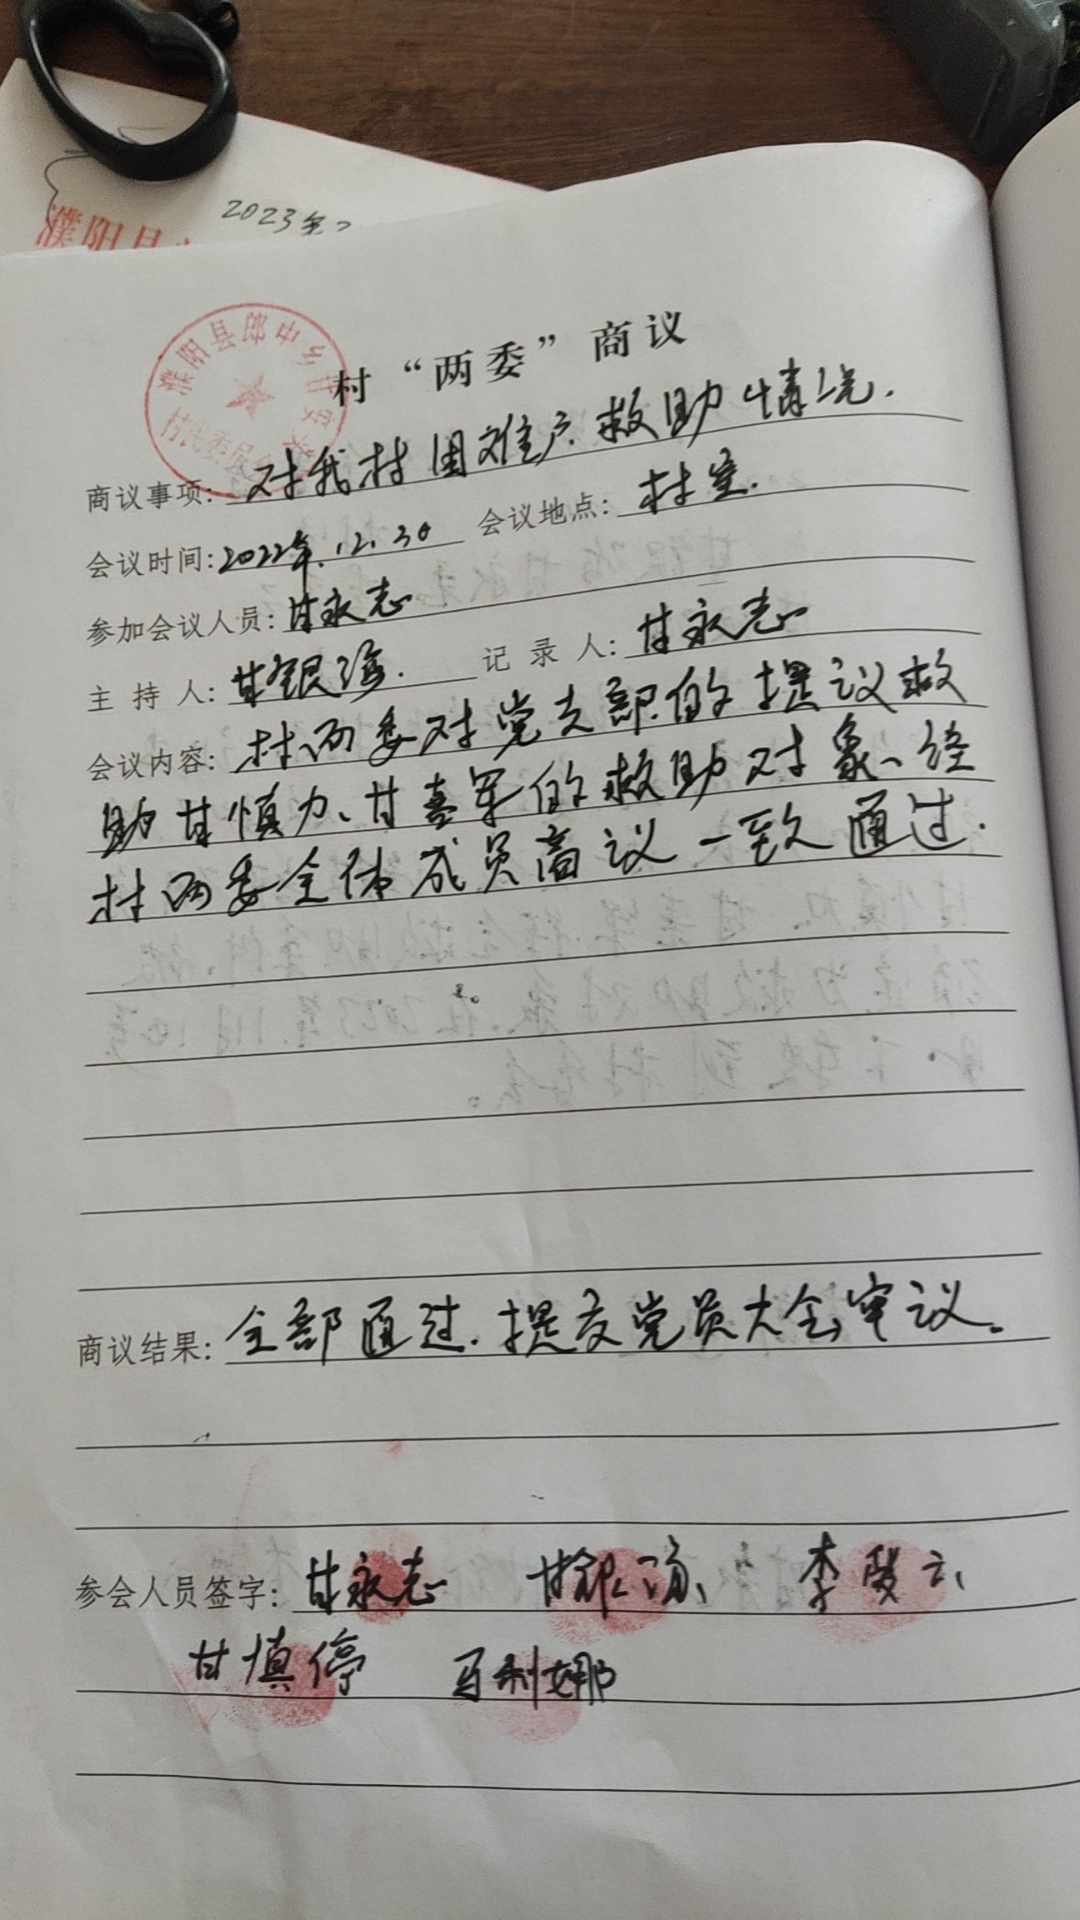 2023年
濮阳县
濮阳县郎中乡甘
村民委员会
村“两委”商议
商议事项：对我村困难户救助情况.
会议时间：2022年.12.30 会议地点：村室.
参加会议人员：甘永志
主持人：甘银海. 记录人：甘永志
会议内容：村两委对党支部的提议救
助甘慎力、甘喜军的救助对象、经
村两委全体成员商议一致通过.
商议结果：全部通过.提交党员大会审议。
参会人员签字：甘永志 甘银海 李
甘慎停 马利娜